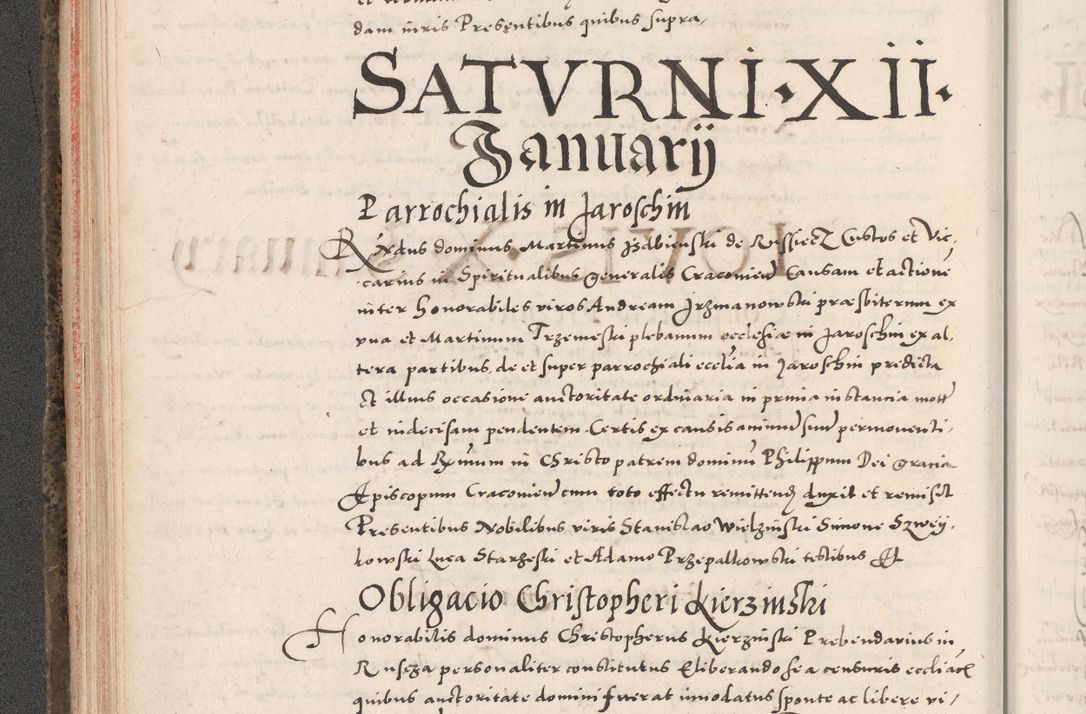 dam iuris Presentibus quibus supra,
SATVRNI·XII·
Januarij
Parrochialis in Jaroschin
Rxndus dominus Martinus Jzdbienski de Russiecz Custos et Vic,
carius in Spiritualibus generalis Cracovien Causam et actione
inter Honorabiles viros Andream Jrzmanowski præsbiterum ex
vna et Martinum Trzemeski plebanum ecclesiæ in Jaroschin ex al,
tera partibus, de et super parrochiali ecclia in Jaroschin predicta
et illius occasione auctoritate ordinaria in prima instancia mott
et indecisam pendentem Certis ex causis animu suu permoventi,
bus ad Rxmum in Christo patrem dominu Philippum Dei gracia
Episcopum Cracovien cum toto effectu remittend duxit et remisit
Presentibus Nobilibus viris Stanislao Wielzinski Simone Szweÿ,
kowski Luca Starzeski et Adamo Przepalkowski testibus Et
Obligacio Christopheri Kierzinski
Honorabilis dominus Christopherus Kierzinski Prebendarius in
Ruseza personaliter constitutus Eliberando se a censuris eccliacis
quibus auctoritate domini fuerat innodatus sponte ac libere vi,